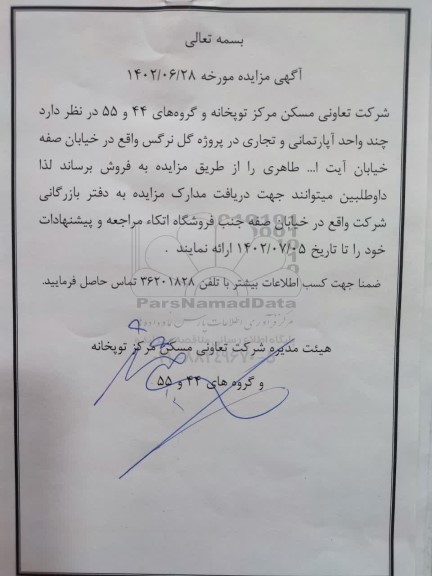 بسمه تعالی
آگهی مزایده مورخه ۱۴۰۲/۰۶/۲۸
شرکت تعاونی مسکن مرکز توپخانه و گروه‌های ۴۴ و ۵۵ در نظر دارد
چند واحد آپارتمانی و تجاری در پروژه گل نرگس واقع در خیابان صفه
خیابان آیت ا... طاهری را از طریق مزایده به فروش برساند لذا
داوطلبین میتوانند جهت دریافت مدارک مزایده به دفتر بازرگانی
شرکت واقع در خیابان صفه جنب فروشگاه اتکاء مراجعه و پیشنهادات
خود را تا تاریخ ۱۴۰۲/۰۷/۰۵ ارائه نمایند .
ضمنا جهت کسب اطلاعات بیشتر با تلفن ۳۶۲۰۱۸۲۸ تماس حاصل فرمایید.
ParsNamadData
هیئت مدیره شرکت تعاونی مسکن مرکز توپخانه
و گروه های ۴۴ و ۵۵